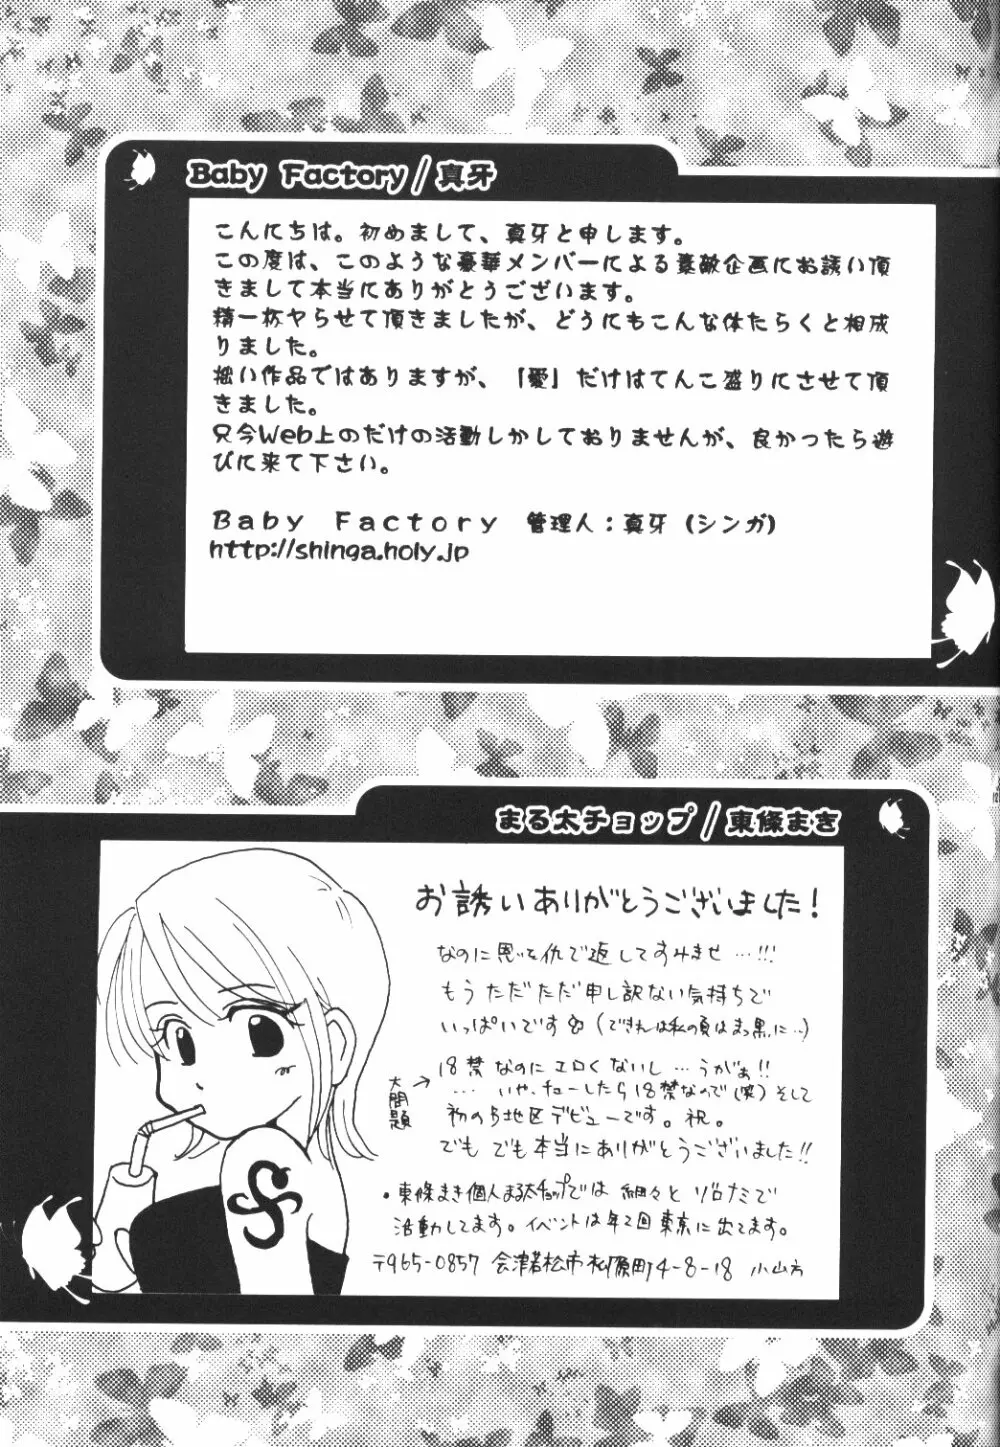 Baby Factory/真牙
こんにちは。初めまして、真牙と申します。
この度は、このような豪華メンバーによる素敵企画にお誘い頂
きまして本当にありがとうございます。
精一杯ヤらせて頂きましたが、どうにもこんな体たらくと相成
りました。
拙い作品ではありますが、「愛」だけはてんこ盛りにさせて頂
きました。
只今Web上のだけの活動しかしておりませんが、良かったら遊
びに来て下さい。
Baby Factory 管理人：真牙（シンガ）
http://shinga.holy.jp
まる太チョップ/東條まき
お誘いありがとうございました！
なのに恩を仇で返してすみませ…!!!
もう ただただ申し訳ない気持ちで
いっぱいです（できれば私の頁はまっ黒に…）
18禁なのに エロくないし…うがぁ!!
大問題→
…いや、チューしたら18禁なので（笑）そして
初の地区デビューです。祝。
でも でも本当にありがとうございました!!
・東條まき個人まる太チョップでは 細々と ゾロナミで
活動してます。イベントは年2回東京に出てます。
〒965-0857 会津若松市柳原町4-8-18 小山方